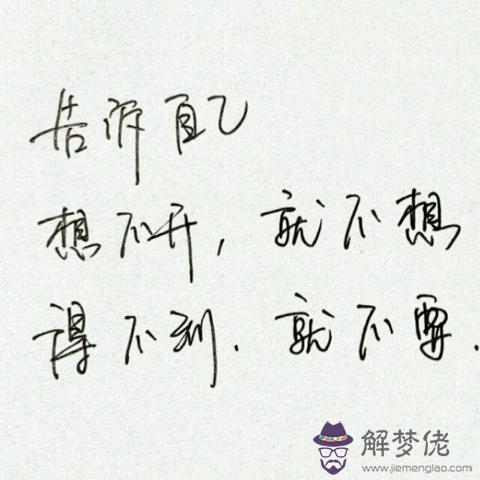 告诉自己
想不开，就不想
得不到．就不要．
解梦佬
www.jiemenglao.com